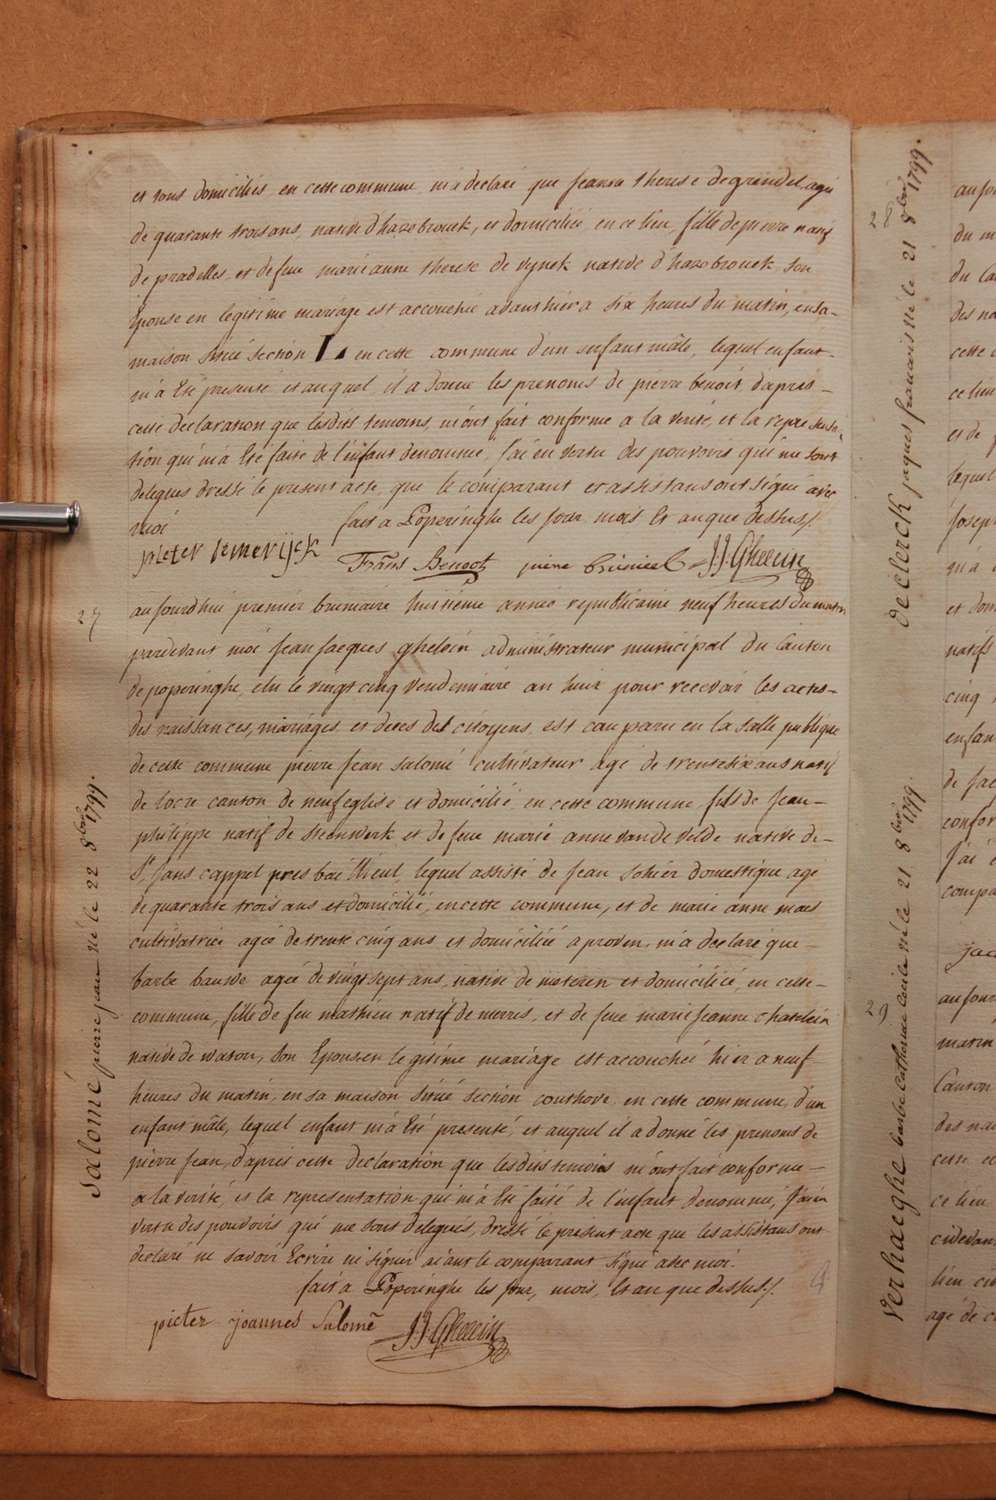 et tous domiciliés en cette commune m'a declaré que jeanne therese degrendel, agée
de quarante trois ans, native d'hazebrouck, et domiciliée en ce lieu, fille de pierre natif
de pradelles et de feue marie anne therese de vynck native d'hazebrouck son
épouse en légitime mariage est accouchée avant hier a six heures du matin, en sa-
maison situé section L. en cette commune d'un enfant mâle, lequel enfant-
m'a été presenté et auquel il a donné les prenoms de pierre benoit d'apres-
cette declaration que lesdits temoins m'ont fait conforme a la verité, et la represénta-
tion qui m'a été faite de l'enfant denommé, j'ai en vertu des pouvoirs qui me sont
delegués dressé le present acte, que le comparant et assistans ont signé avec
moi fait a Poperinghe les jour mois et an que dessus/.
pieter
Frans pierre J J Ghelein
27
aujourdhui premier brumaire huitiéme année republicaine neuf heures du matin
pardevant moi Jean Jacques ghelein administrateur municipal du Canton
de poperinghe, élu le vingt cinq vendemiaire an huit pour recevoir les actes-
des naissances, mariages et deces des citoyens, est comparu en la salle publique
de cette commune pierre Jean Salomé cultivateur agé de trente six ans natif
de locre canton de neuféglise et domicilié en cette commune fils de Jean-
philippe natif de steenwerk et de feue marie anne vande velde native de-
St Jans cappel pres bailleul, lequel assisté de Jean Sohier domestique agé
de quarante trois ans et domicilié, en cette commune, et de marie anne maes
cultivatrice agée de trente cinq ans et domiciliée a proven, m'a declaré que-
barbe bauwe agée de vingt sept ans, native de meteren et domiciliée, en cette-
commune, fille de feu mathieu natif de merris, et de feue marie jeanne chatelein
native de watou, son Epouse en legitime mariage est accouchée hier a neuf
heures du matin, en sa maison situé section couthove en cette commune, d'un
enfant mâle, lequel enfant m'a été presenté, et auquel il a donné les prenoms de
pierre Jean, d'apres cette declaration que lesdits temoins m'ont fait conforme-
a la verité, et la representation qui m'a été faite de l'enfant denommé, j'ai en
vertu des pouvoirs qui me sont delegués, dressé le present acte que les assistans ont
declaré ne savoir Ecrire ni signer aiant le comparant signé avec moi.
fait a Poperinghe les jour, mois, et an que dessus/.
pieter joannes Salomé J J Ghelein
Salomé pierre jean né le 22 8bre 1799.
28
declerck jaques francois né le 21 8bre 1799.
29
verhaeghe barbe catharine cecile né le 21 8bre 1799.